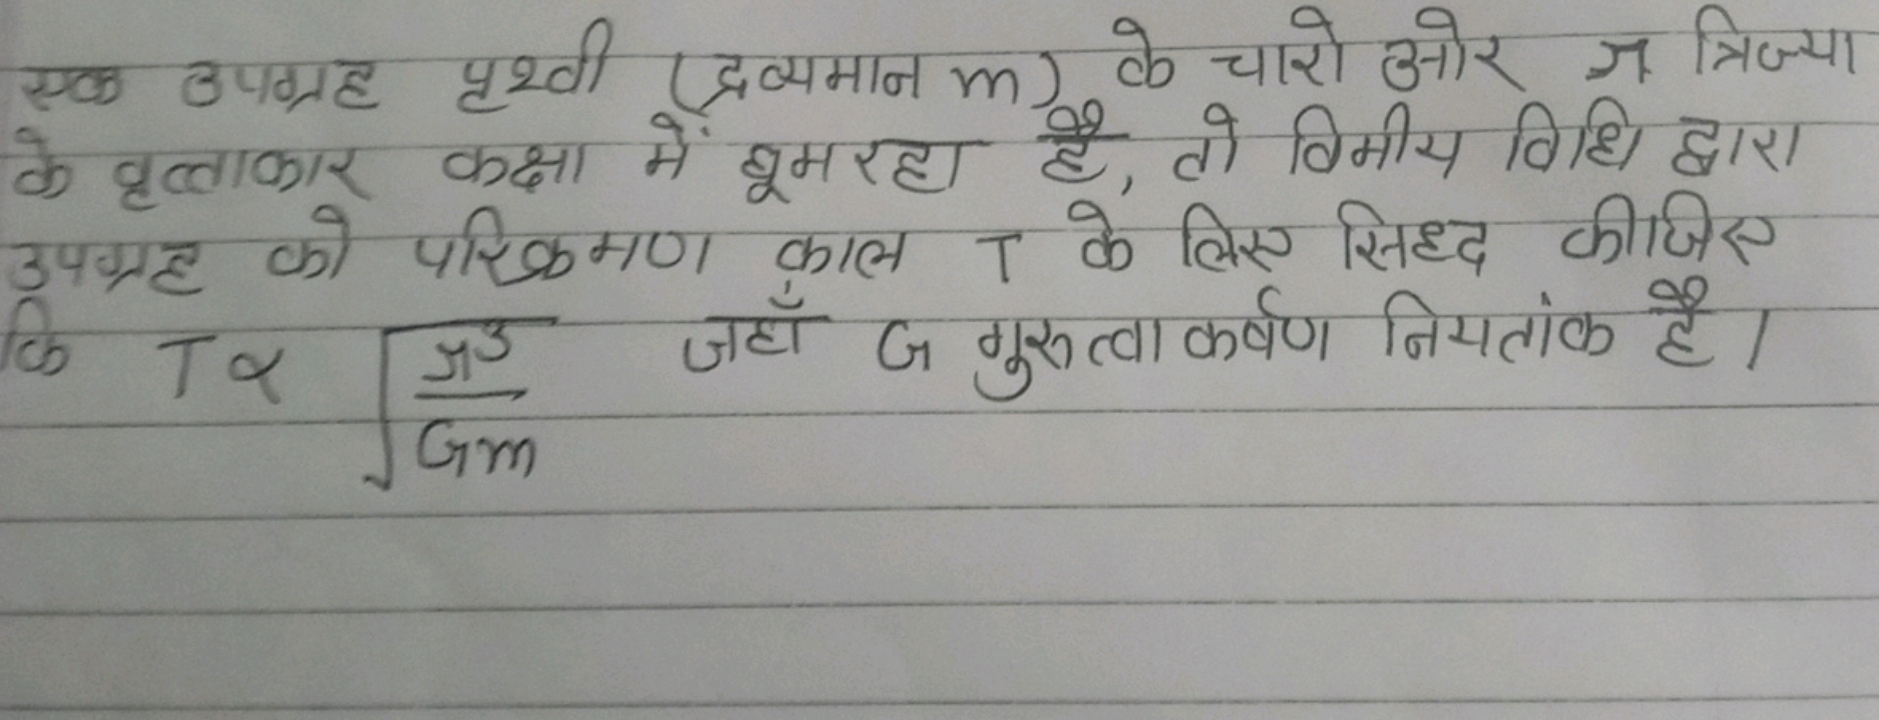 एक उपग्रह पृथ्वी (द्रव्यमान m) के चारो ओर r त्रिज्या
के वृत्ताकार कक्षा में घूम रहा है, तो विमीय विधि द्वारा
उपग्रह को परिक्रमण काल T के लिए सिध्द कीजिए
कि T α √(r³/Gm) जहाँ G गुरुत्वाकर्षण नियतांक है।